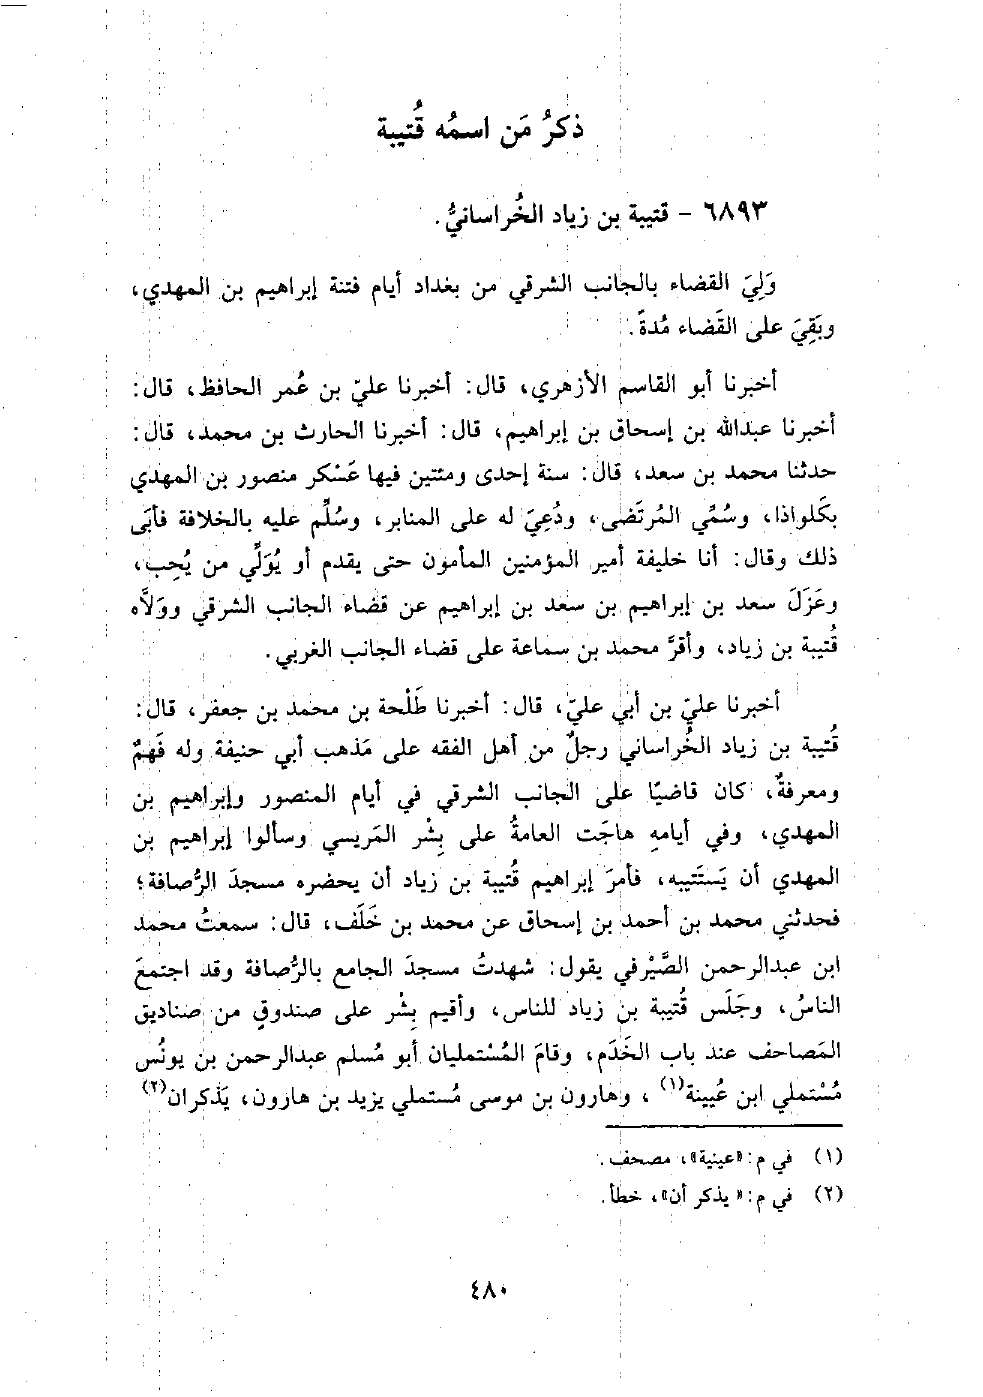 ذكرُ مَن اسمُه قُتيبة
٦٨٩٣ - قتيبة بن زياد الخُراسانيُّ.
وَلِيَ القضاء بالجانب الشرقي من بغداد أيام فتنة إبراهيم بن المهدي،
وبَقِيَ على القَضاء مُدةً.
أخبرنا أبو القاسم الأزهري، قال: أخبرنا عليّ بن عُمر الحافظ، قال:
أخبرنا عبدالله بن إسحاق بن إبراهيم، قال: أخبرنا الحارث بن محمد، قال:
حدثنا محمد بن سعد، قال: سنة إحدى ومئتين فيها عَسْكر منصور بن المهدي
بكَلواذا، وسُمِّي المُرتَضى، ودُعِيَ له على المنابر، وسُلِّم عليه بالخلافة فأبَى
ذلك وقال: أنا خليفة أمير المؤمنين المأمون حتى يقدم أو يُوَلِّي من يُحِب،
وعَزَلَ سعد بن إبراهيم بن سعد بن إبراهيم عن قضاء الجانب الشرقي ووَلاَّه
قُتيبة بن زياد، وأقرَّ محمد بن سماعة على قضاء الجانب الغربي.
أخبرنا عليّ بن أبي عليّ، قال: أخبرنا طَلْحة بن محمد بن جعفر، قال:
قُتيبة بن زياد الخُراساني رجلٌ من أهل الفقه على مَذهب أبي حنيفة وله فَهمٌ
ومعرفةٌ، كان قاضيًا على الجانب الشرقي في أيام المنصور وإبراهيم بن
المهدي، وفي أيامهِ هاجَت العامةُ على بِشْر المَريسي وسألوا إبراهيم بن
المهدي أن يَستَتيبه، فأمرَ إبراهيم قُتيبة بن زياد أن يحضره مسجدَ الرُّصافة؛
فحدثني محمد بن أحمد بن إسحاق عن محمد بن خَلَف، قال: سمعتُ محمد
ابن عبدالرحمن الصَّيْرفي يقول: شهدتُ مسجدَ الجامع بالرُّصافة وقد اجتمعَ
الناسُ، وجَلَس قُتيبة بن زياد للناس، وأقيم بِشْر على صندوقٍ من صناديق
المَصاحف عند باب الخَدَم، وقامَ المُسْتمليان أبو مُسلم عبدالرحمن بن يونُس
مُسْتملي ابن عُيينة(١)، وهارون بن موسى مُستملي يزيد بن هارون، يَذكران(٢)
(١) في م: «عينية»، مصحف.
(٢) في م: «يذكر أن»، خطأ.
٤٨٠